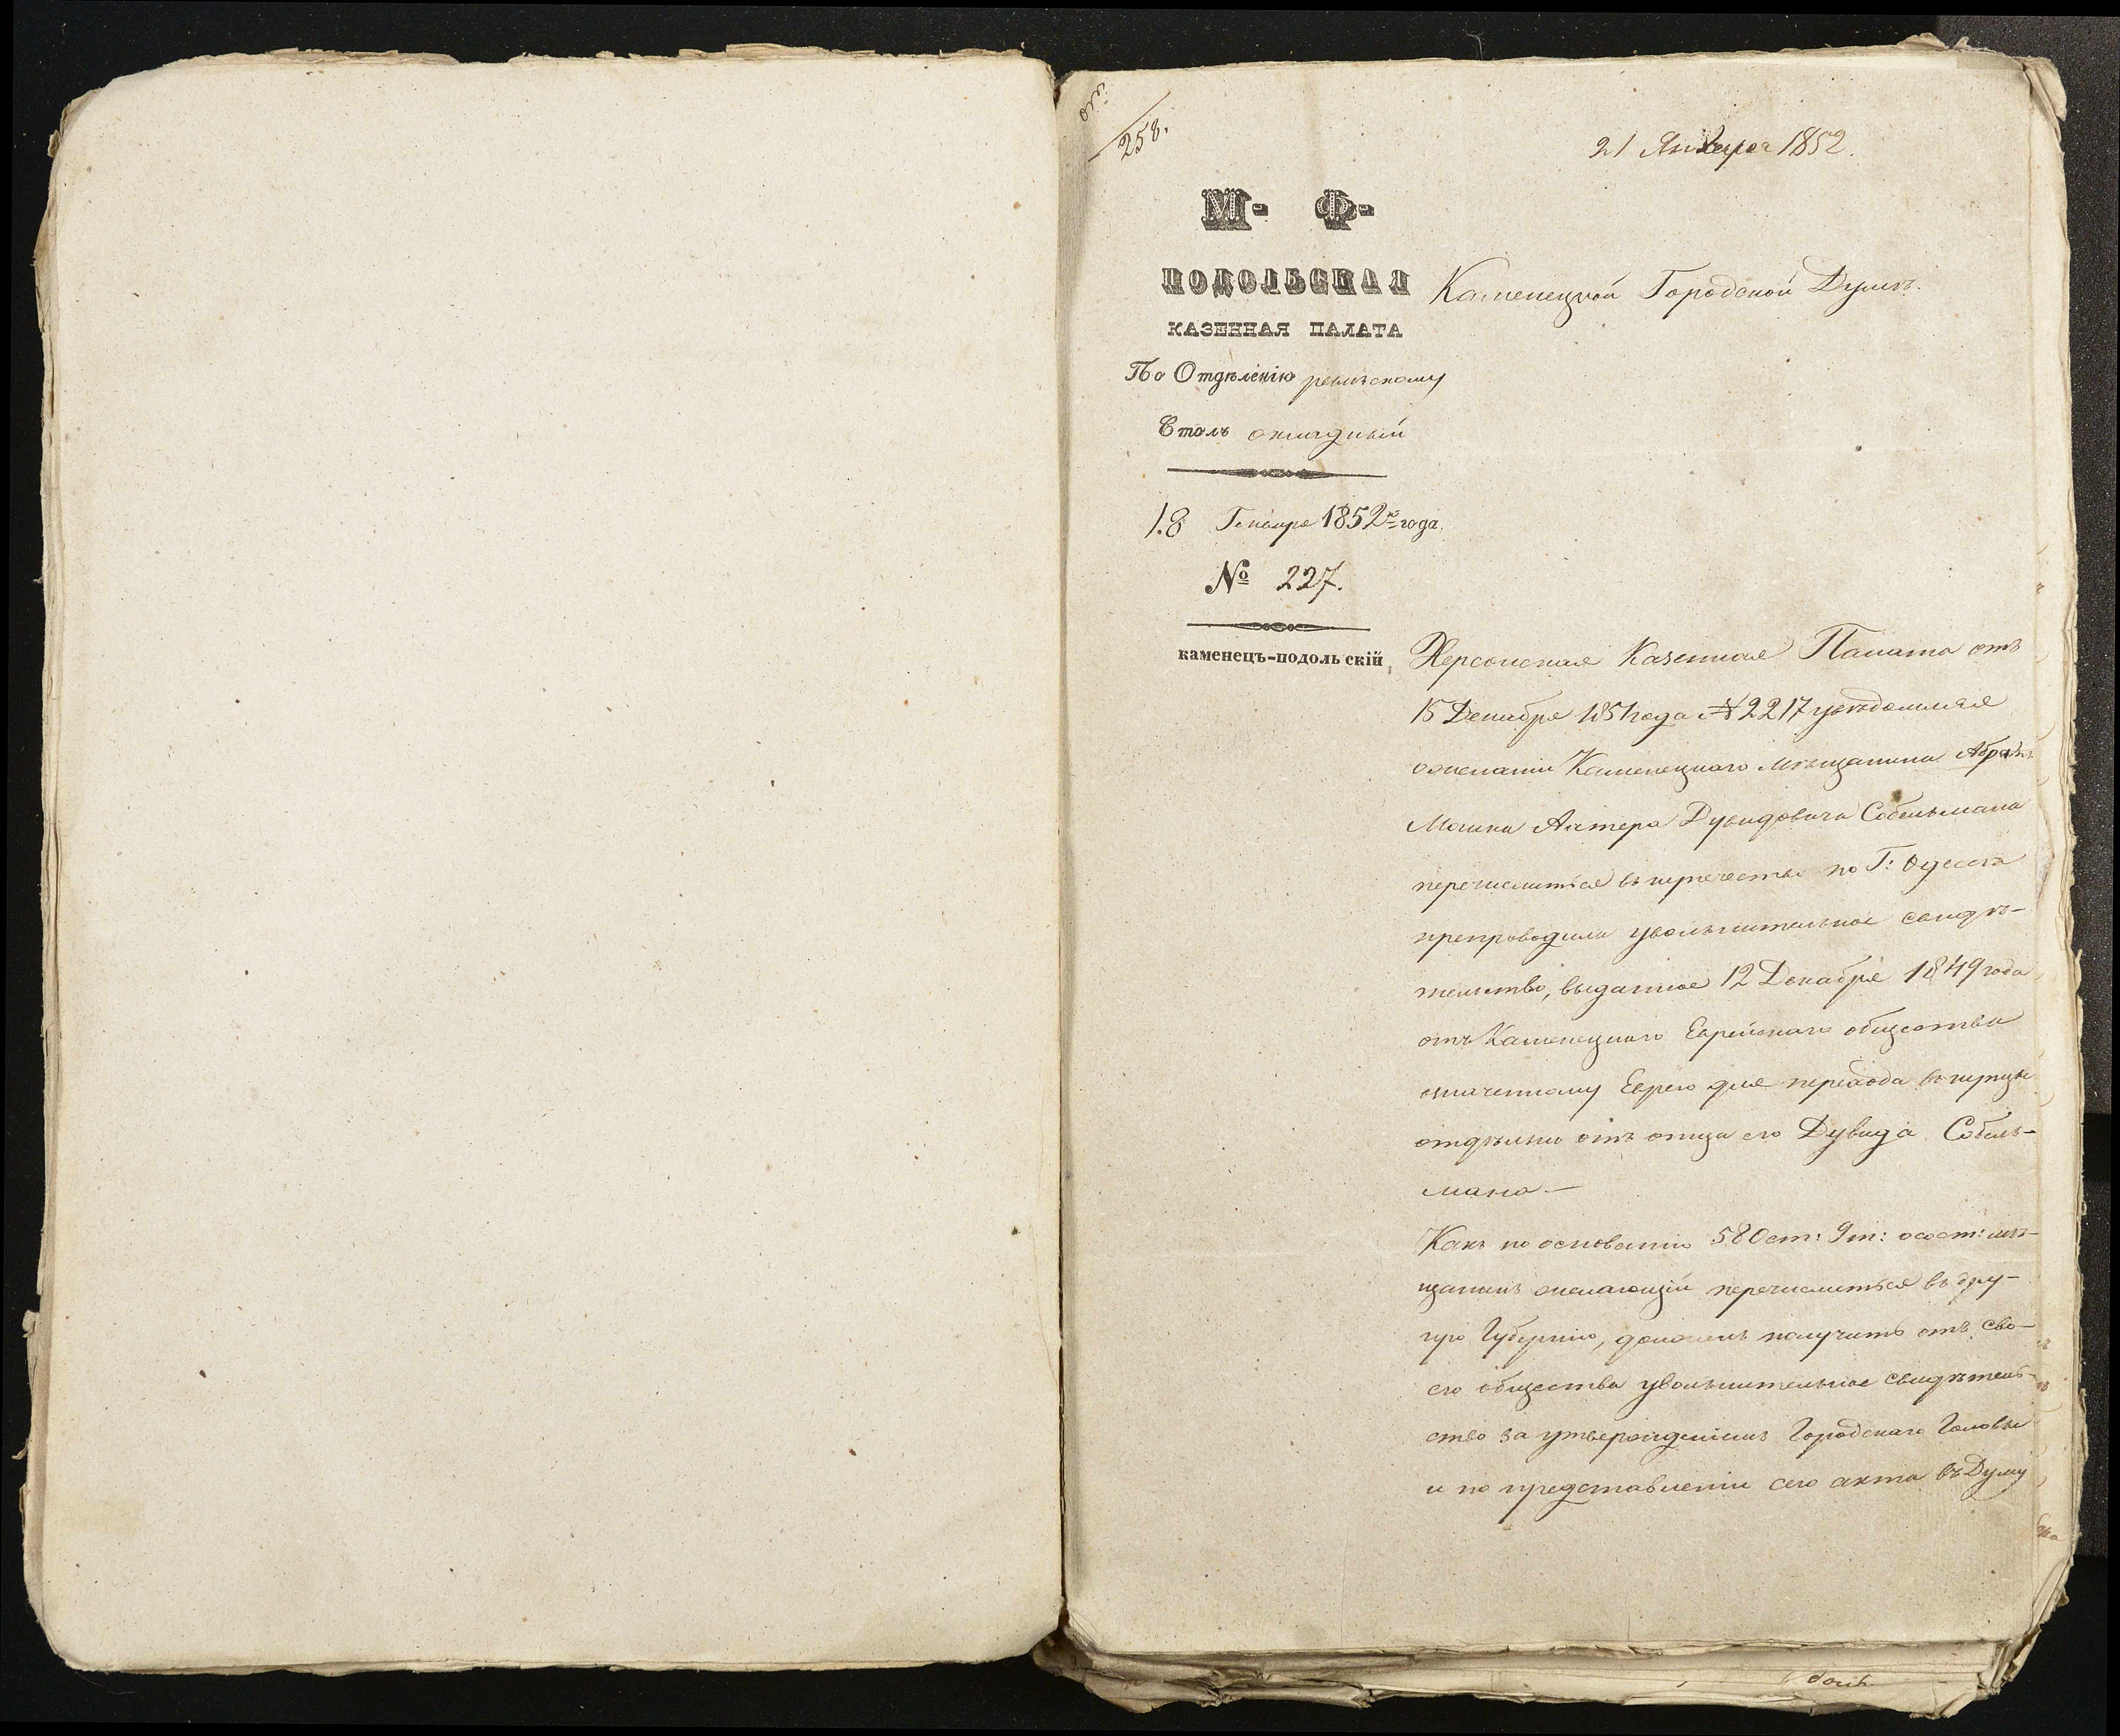 258.
21 Января 1852.
М. Ф.
ПОДОЛЬСКАЯ
КАЗЕННАЯ ПАЛАТА
По Отдѣленію ревизскому
Столъ окладный
18 Генваря 1852го года.
№ 227.
КАМЕНЕЦЪ-ПОДОЛЬСКІЙ
Каменецкой Городской Думѣ.
Херсонская Казенная Палата отъ
15 Декабря 1851 года № 2217 увѣдомляя
о желаніи Каменецкаго мѣщанина
Мошки Алтера Дувидовича Собельмана
перечислиться въ купечество по Г: Одессѣ
препроводила увольнительное свидѣ-
тельство, выданное 12 Декабря 1849 года
отъ Каменецкаго Еврейскаго общества
означенному Еврею для перехода въ купцы
отдѣльно отъ отца его Дувида Собель-
мана —
Какъ по основанію 580 ст: 9 т: о сост: мѣ-
щанинъ желающій перечислиться въ дру-
гую Губернію, долженъ получить отъ сво-
его общества увольнительное свидѣтель-
ство за утвержденіемъ Городскаго Головы
и по представленіи сего акта въ Думу